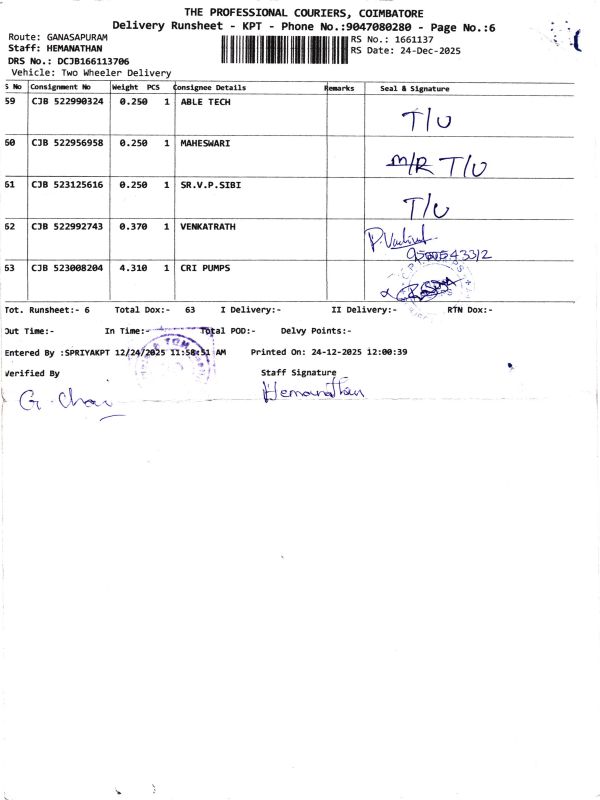 THE PROFESSIONAL COURIERS, COIMBATORE
Delivery Runsheet - KPT - Phone No.:9047080280 - Page No.:6
Route: GANASAPURAM
RS No.: 1661137
Staff: HEMANATHAN
RS Date: 24-Dec-2025
DRS No.: DCJB166113706
Vehicle: Two Wheeler Delivery
S No Consignment No Weight PCS Consignee Details Remarks Seal & Signature
59 CJB 522990324 0.250 1 ABLE TECH T/U
60 CJB 522956958 0.250 1 MAHESWARI M/R T/U
61 CJB 523125616 0.250 1 SR.V.P.SIBI T/U
62 CJB 522992743 0.370 1 VENKATRATH
63 CJB 523008204 4.310 1 CRI PUMPS
Tot. Runsheet:- 6 Total Dox:- 63 I Delivery:- II Delivery:- RTN Dox:-
Out Time:- In Time:- Total POD:- Delvy Points:-
Entered By :SPRIYAKPT 12/24/2025 11:58:51 AM Printed On: 24-12-2025 12:00:39
Verified By Staff Signature
Hemanathan